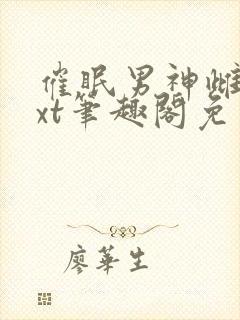 催眠男神雌
xt笔趣阁免
廖华生